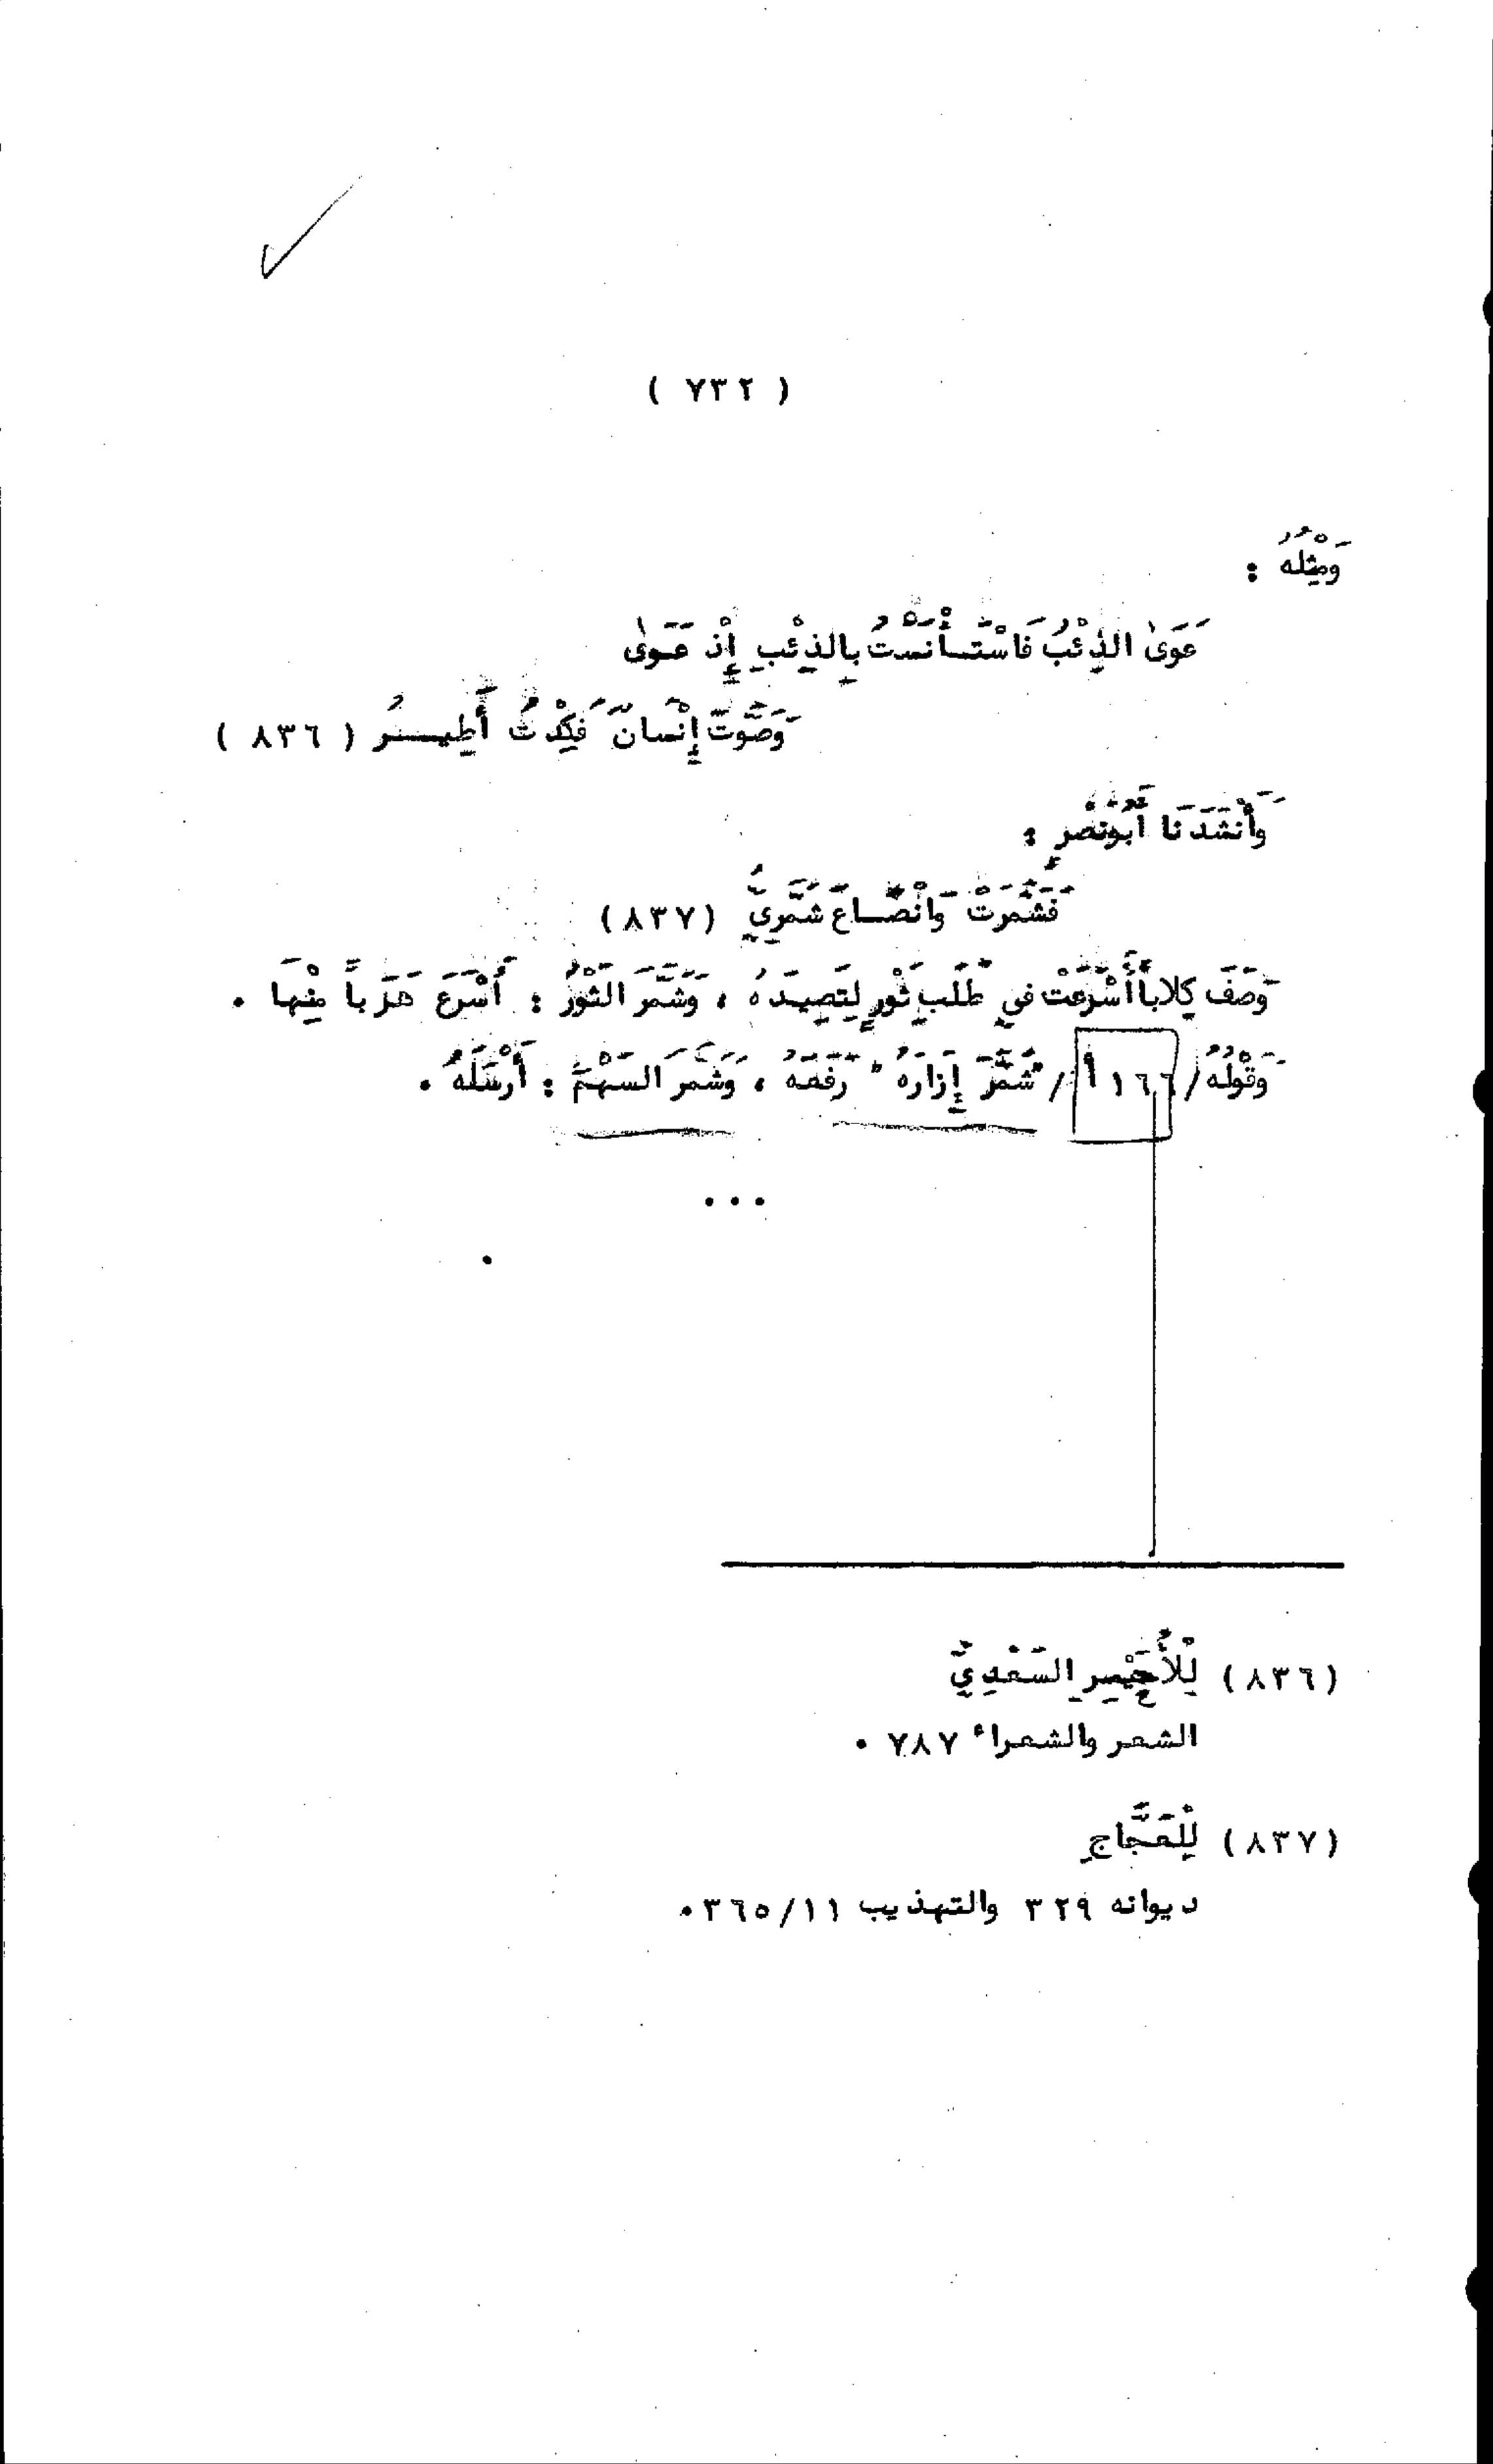 ( ٧٣٢ )
وَمِثْلُهُ :
عَوَىٰ الذِئْبُ فَاسْتَأْنَسْتُ بِالذِئْبِ إِذْ عَوَىٰ
وَصَوَّتَ إِنْسَانٌ فَكِدْتُ أَطِيـــرُ ( ٨٣٦ )
وَأَنْشَدَنَا أَبُونَصْرٍ :
فَشَمَّرَتْ وَانْصَاعَ شَمَّرِيُّ (٨٣٧)
وَصَفَ كِلاباً أَسْرَعَتْ في طَلَبِ ثَوْرٍ لِتَصِيدَهُ ، وَشَمَّرَ الثَوْرُ : أَسْرَعَ هَرَباً مِنْهَا .
وَقَوْلُهُ / ١٦٦ أ / "شَمَّرَ إِزَارَهُ" رَفَعَهُ ، وَشَمَّرَ السَهْمَ : أَرْسَلَهُ .
...
(٨٣٦) لِلْأُحَيْمِرِ السَّعْدِيِّ
الشعر والشعراء ٧٨٧ .
(٨٣٧) لِلْعَجَّاجِ
ديوانه ٣٢٩ والتهذيب ٣٦٥/١١ .